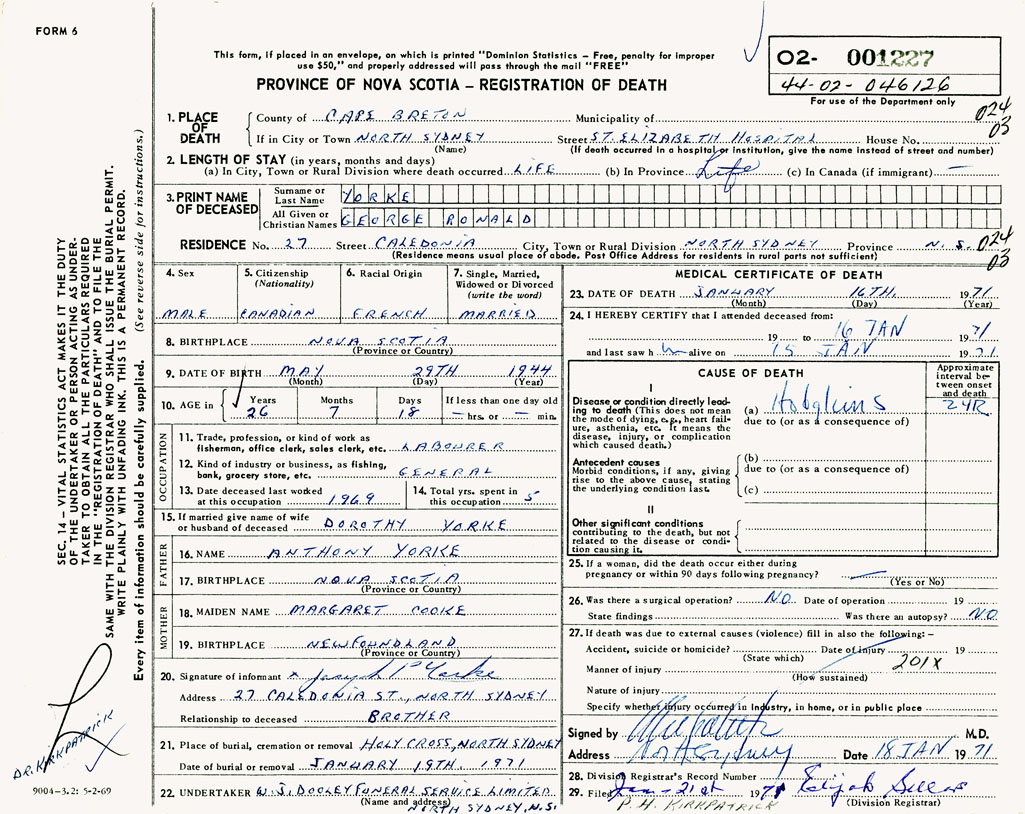 FORM 6
This form, if placed in an envelope, on which is printed "Dominion Statistics – Free, penalty for improper
use $50," and properly addressed will pass through the mail "FREE"
PROVINCE OF NOVA SCOTIA – REGISTRATION OF DEATH
02- 001227
44-02-046126
For use of the Department only
024
03
1. PLACE OF DEATH
County of CAPE BRETON Municipality of
If in City or Town NORTH SYDNEY Street ST. ELIZABETH HOSPITAL House No.
(Name) (If death occurred in a hospital or institution, give the name instead of street and number)
2. LENGTH OF STAY (in years, months and days)
(a) In City, Town or Rural Division where death occurred LIFE (b) In Province Life (c) In Canada (if immigrant) —
3. PRINT NAME OF DECEASED
Surname or Last Name YORKE
All Given or Christian Names GEORGE RONALD
RESIDENCE No. 27 Street CALEDONIA City, Town or Rural Division NORTH SYDNEY Province N.S. 024
03
(Residence means usual place of abode. Post Office Address for residents in rural parts not sufficient)
4. Sex
MALE
5. Citizenship
(Nationality)
CANADIAN
6. Racial Origin
FRENCH
7. Single, Married,
Widowed or Divorced
(write the word)
MARRIED
8. BIRTHPLACE NOVA SCOTIA
(Province or Country)
9. DATE OF BIRTH MAY 29TH 1944
(Month) (Day) (Year)
10. AGE in
Years Months Days If less than one day old
26 7 18 — hrs. or — min.
OCCUPATION
11. Trade, profession, or kind of work as
fisherman, office clerk, sales clerk, etc. LABOURER
12. Kind of industry or business, as fishing,
bank, grocery store, etc. GENERAL
13. Date deceased last worked
at this occupation 1969
14. Total yrs. spent in
this occupation 5
15. If married give name of wife
or husband of deceased DOROTHY YORKE
FATHER
16. NAME ANTHONY YORKE
17. BIRTHPLACE NOVA SCOTIA
(Province or Country)
MOTHER
18. MAIDEN NAME MARGARET COOKE
19. BIRTHPLACE NEWFOUNDLAND
(Province or Country)
20. Signature of informant x Joseph Yorke
Address 27 CALEDONIA ST., NORTH SYDNEY
Relationship to deceased BROTHER
21. Place of burial, cremation or removal HOLY CROSS, NORTH SYDNEY
Date of burial or removal JANUARY 19TH. 1971
22. UNDERTAKER W. J. DOOLEY FUNERAL SERVICE LIMITED
(Name and address) NORTH SYDNEY, N.S.
MEDICAL CERTIFICATE OF DEATH
23. DATE OF DEATH JANUARY 16TH. 1971
(Month) (Day) (Year)
24. I HEREBY CERTIFY that I attended deceased from:
19 to 16 JAN 1971
and last saw h im alive on 15 JAN 1971
CAUSE OF DEATH
Approximate
interval be-
tween onset
and death
I
Disease or condition directly lead-
ing to death (This does not mean
the mode of dying, e.g., heart fail-
ure, asthenia, etc. It means the
disease, injury, or complication
which caused death.)
(a) Hodgkins 2 YR.
due to (or as a consequence of)
Antecedent causes
Morbid conditions, if any, giving
rise to the above cause, stating
the underlying condition last.
(b)
due to (or as a consequence of)
(c)
II
Other significant conditions
contributing to the death, but not
related to the disease or condi-
tion causing it.
25. If a woman, did the death occur either during
pregnancy or within 90 days following pregnancy? —
(Yes or No)
26. Was there a surgical operation? NO Date of operation 19
State findings Was there an autopsy? NO
27. If death was due to external causes (violence) fill in also the following:–
Accident, suicide or homicide? Date of injury 19
(State which) 201X
Manner of injury
(How sustained)
Nature of injury
Specify whether injury occurred in industry, in home, or in public place
Signed by M.D.
Address North Sydney Date 18 JAN 1971
28. Division Registrar's Record Number
29. Filed Jan - 21st 1971 Elijah
P. H. KIRKPATRICK (Division Registrar)
SEC. 14 – VITAL STATISTICS ACT MAKES IT THE DUTY
OF THE UNDERTAKER OR PERSON ACTING AS UNDER-
TAKER TO OBTAIN ALL THE PARTICULARS REQUIRED
IN THE "REGISTRATION OF DEATH" AND TO FILE THE
SAME WITH THE DIVISION REGISTRAR WHO SHALL ISSUE THE BURIAL PERMIT.
WRITE PLAINLY WITH UNFADING INK. THIS IS A PERMANENT RECORD.
Every item of information should be carefully supplied. (See reverse side for instructions.)
DR. KIRKPATRICK
9004-3.2: 5-2-69